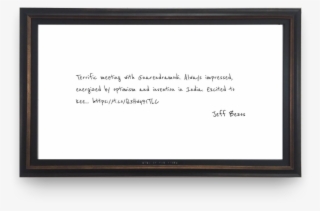 Terrific meeting with @narendramodi. Always impressed,
energized by optimism and invention in India. Excited to
see…
Jeff Bezos